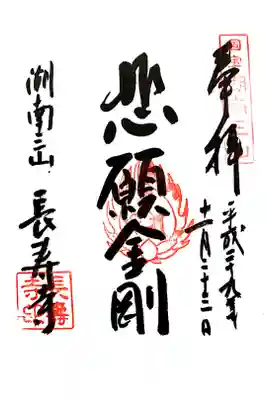 奉拝
平成二十九年
十一月二十三日
悲願金剛
湖南三山
長寿寺